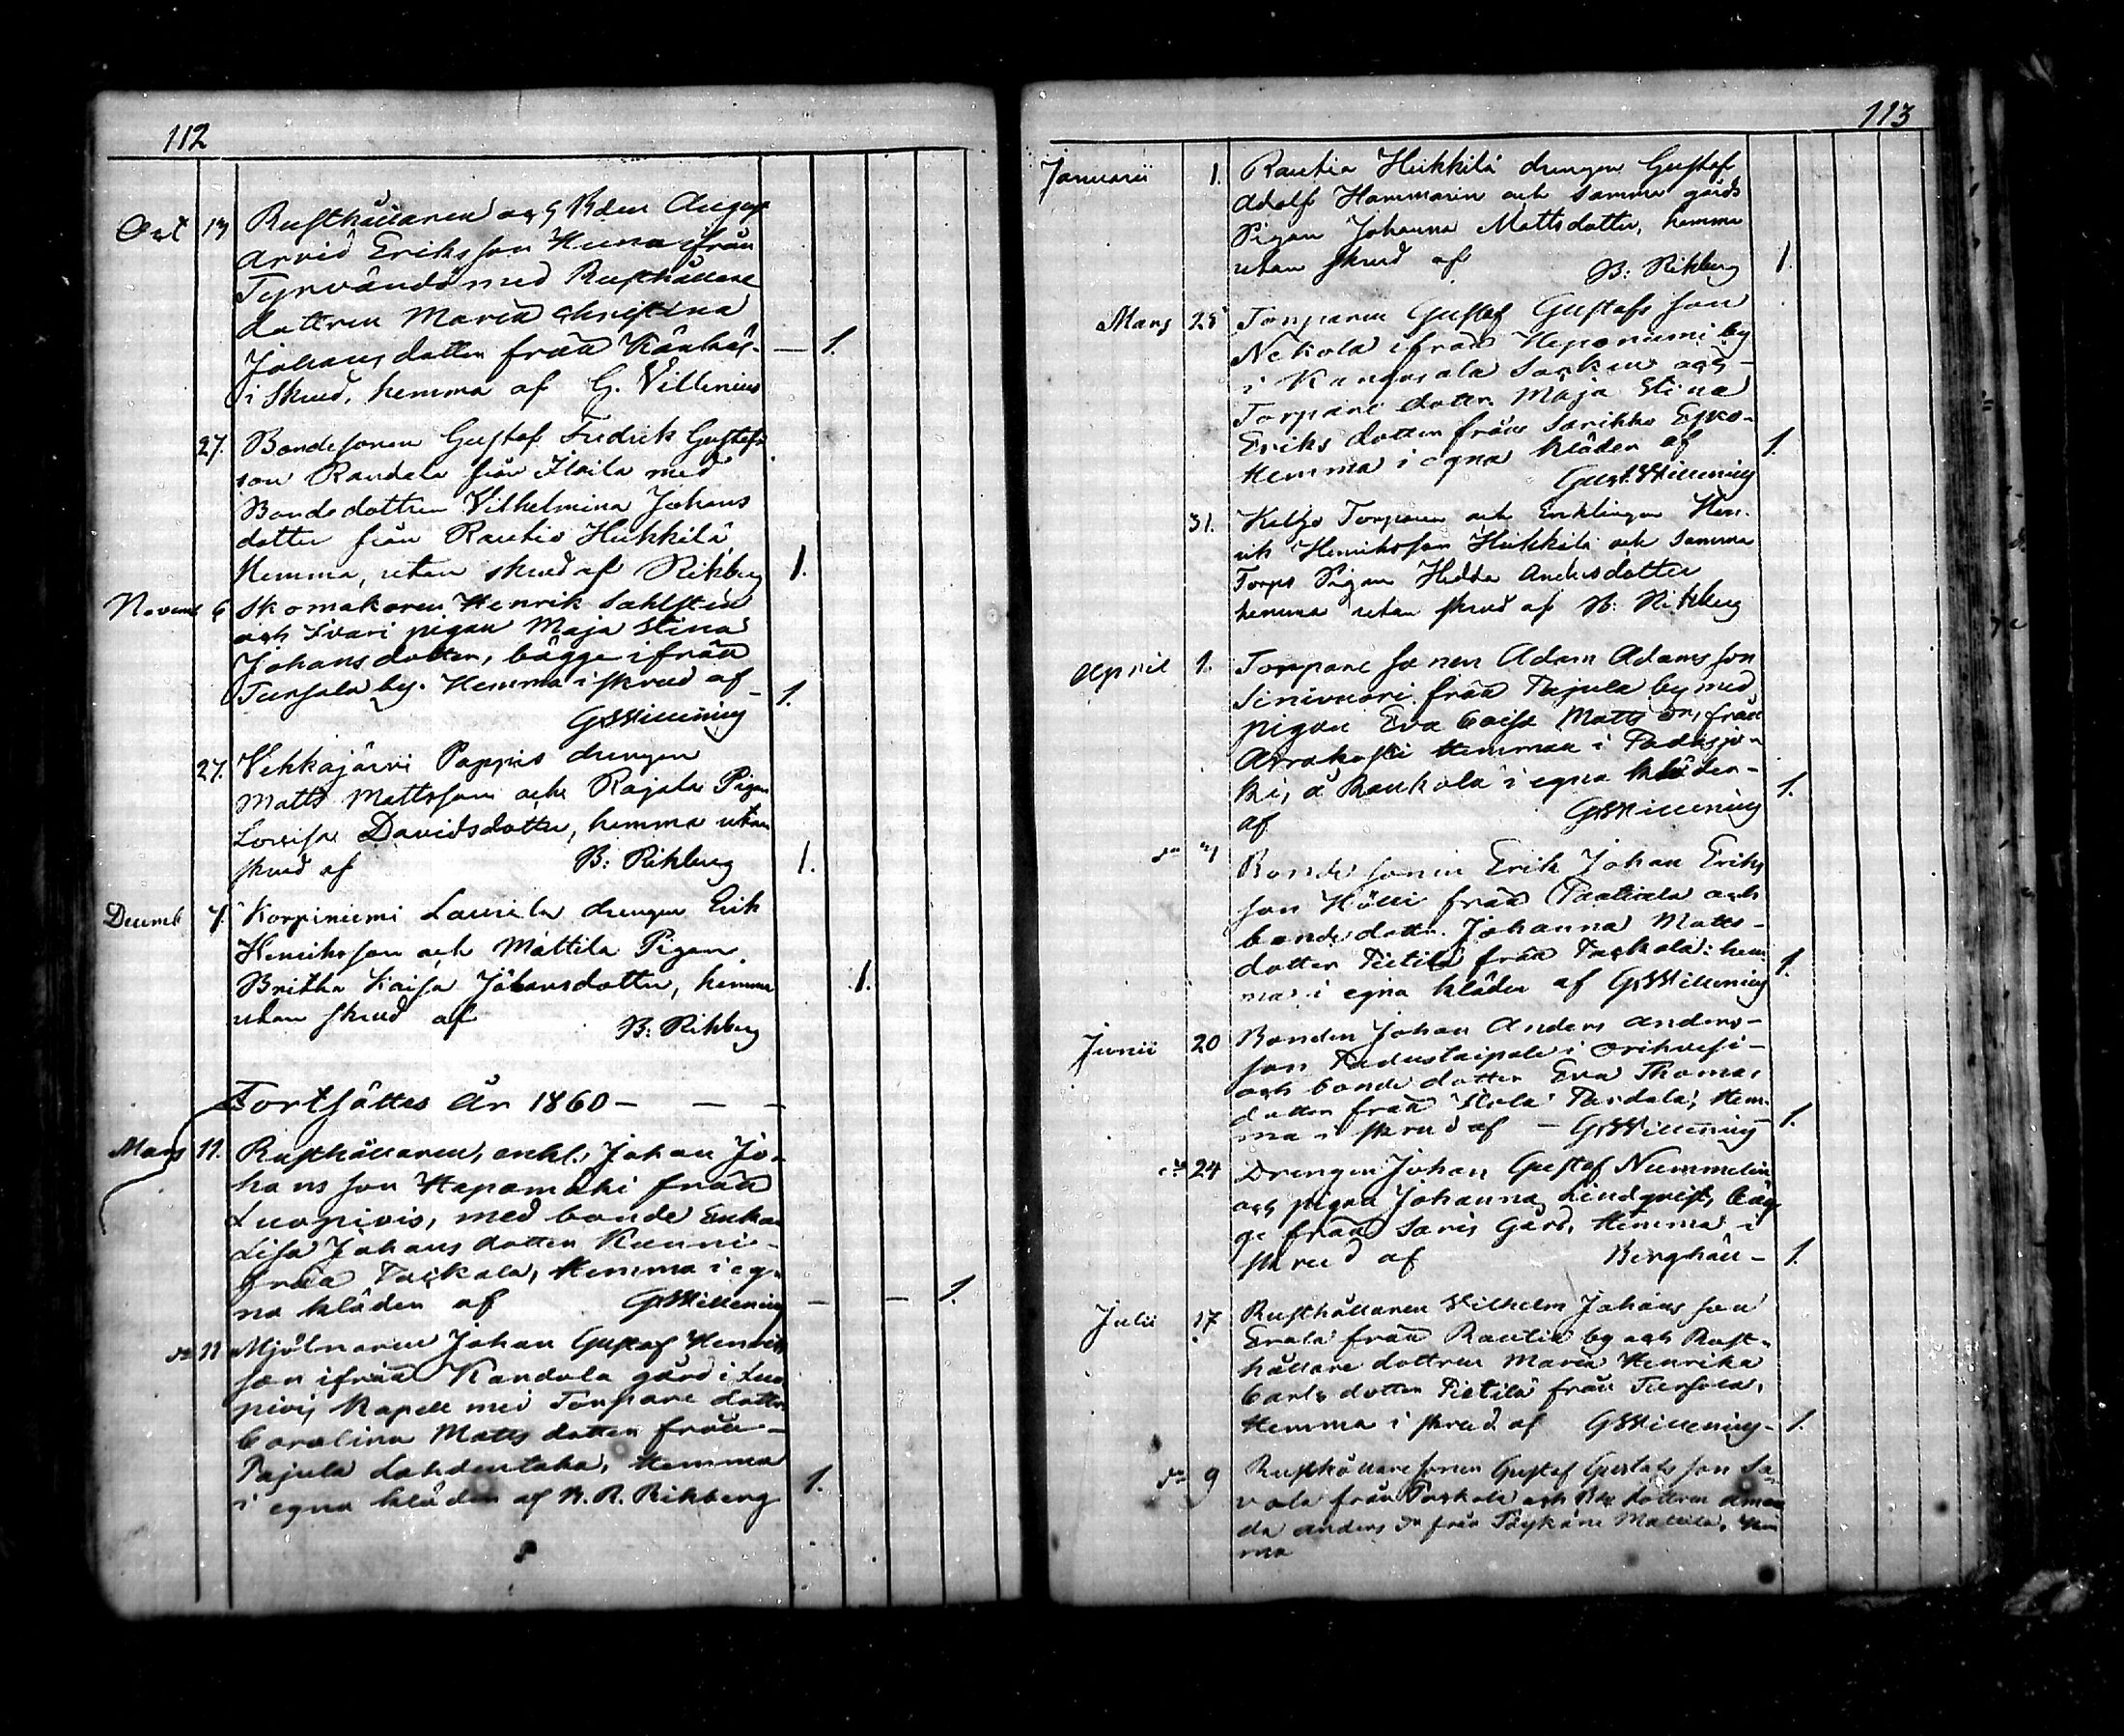 112
Oct 13 Rusthållaren och Bden August
Arvid Eriksson Huna ifrån
Tyrvändö med Rusthållare
dottren Maria Christina
Johans dotter från
i skrud, hemma af G. Villenius 1.
27. Bondesonen Gustaf Fredrik Gustafs
son Randala från Iltila med
Bondedottren Vilhelmina Johans
dotter från Rautio Heikkilä
Hemma, utan skrud af Rikberg 1.
Novemb 6 Skomakaren Henrik Sahlsten
och Ivari pigan Maja Stina
Johansdotter, bägge ifrån
Tursala by. Hemma i skrud af 1.
GWillenius
27. Vehkajärvi Pappis drengen
Matts Mattsson och Rajala Pigan
Lovisa Davidsdotter, hemma utan
skrud af B: Rikberg 1.
Decemb 7. Korpiniemi Laurila drengen Erik
Henriksson och Mattila Pigan
Britha Kaisa Johansdotter, hemma 1.
utan skrud af B: Rikberg
Fortsättes År 1860 – – –
Mars 11. Rusthållaren, enkl. Johan Jo-
hansson Hapamäki från
Luopiois, med bonde Enkan
Lisa Johans dotter Kunni-
från Puckala, Hemma i eg-
na kläder af GWillenius – – 1.
do 11 Mjölnaren Johan Gustaf Henriks
son ifrån Kandola gård i Luo
piois Kapell med Torpare dottr
Carolina Matts dotter från –
Pajula Lahdentaka, Hemma
i egna kläder af B. R. Rikberg 1.
113
Januarii 1. Rautio Heikkilä drengen Gustaf
Adolf Hammarin och samma gårds
Pigan Johanna Mattsdotter, hemma
utan skrud af B: Rikberg 1.
Mars 25 Torparen Gustaf Gustafs son
Nekola ifrån Heponiemi by
i Kangasala Socken och –
Torpare dotter. Maja Stina
Eriks dotter från Sarikko
Hemma i egna kläder af 1.
Gust. Willenius
31. Torparen och Enklingen Hen-
rik Henriksson Heikkilä och samma
Torps Pigan Hedda Andersdotter
hemma utan skrud af B: Rikberg
April 1. Torpare sonen Adam Adamsson
Sinivuori från Pajula by med
pigan Eva Caisa Matts dr, från
Arrakoski Hemman i Padasjo-
ki, å Raukola i egna kläder – 1.
af GWillenius
do Bonde sonen Erik Johan Eriks
son Hölli från och
bonde dottr. Johanna Matts-
dotter Pietilä från Puckala: hem 1.
ma i egna kläder af GWillenius
Junii 20 Bonden Johan Anders Anders-
son i Orihvesi –
och bonde dotter Eva Thomas
dotter från Hem-
ma i skrud af – GWillenius – 1.
do 24 Drengen Johan Gustaf Nummelin
och pigan Johanna Lindqvist, bäg
ge från Saris Gård, Hemma i
skrud af Berghäll – 1.
Julii 17 Rusthållaren Vilhelm Johans son
Erola från Rautio by och Rust-
hållare dottren Maria Henrika
Carls dotter Pietilä från Tursola,
Hemma i skrud af GWillenius – 1.
do 9 Rusthållaresonen Gustaf Gustafs son Sa-
vola från Puckala och dottren Aman
da Anders dr från Mattila, Hem
ma